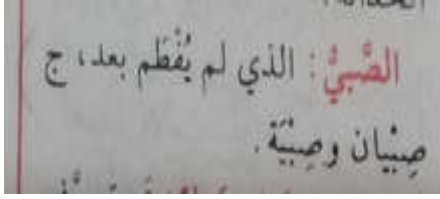 الصَّبيُّ : الذي لم يُفْطَم بعد، ج
صِبْيان وصِبْيَة .